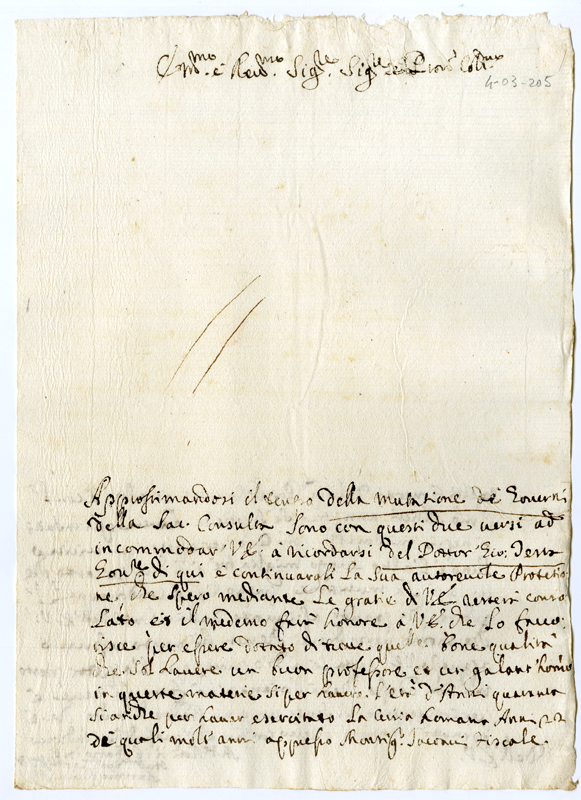 Em.mo e Rev.mo Sig.re Sig.re Pron Coll.mo
4-03-205
Approssimandosi il tempo della mutatione de Governi
della Sac. Consulta sono con questi due versi ad
incommodar V.E. à ricordarsi del Dottor Gio: Terra
Gov.re di qui e continuaroli la sua autorevole Protetio
ne, che spero mediante le gratie di V.E. verrà conso
lato et il medemo farà honore à V.E. che lo favo
risce per essere dotato di tutte quelle bone qualità
che sol havere un buon professore et un galant homo
in queste materie si per havere l'età d'Anni quaranta
si anche per haver esercitato la Curia Romana Anni 22
de quali molt' anni appresso Monsig.r Fiscale.